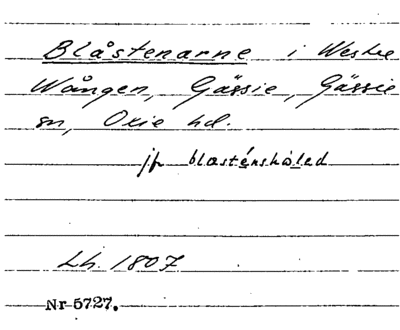 Blåstenarne i Westre
Wången, Gässie, Gässie
sn, Oxie hd.
jfr blasténshåled
Lh. 1807
Nr 5727.